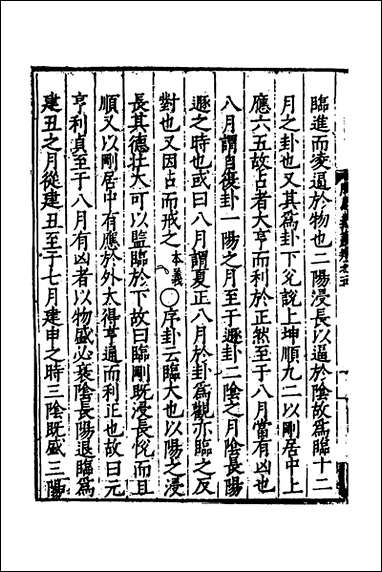 臨進而凌逼於物也二陽浸長以逼於陰故爲臨十二
月之卦也又其爲卦下兊說上坤順九二以剛居中上
應六五故占者大亨而利於正然至于八月當有凶也
八月謂自復卦一陽之月至于遯卦二陰之月陰長陽
遯之時也或曰八月謂夏正八月於卦爲觀亦臨之反
對也又因占而戒之本義〇序卦云臨大也以陽之浸
長其德壮大可以監臨於下故曰臨剛旣浸長悅而且
順又以剛居中有應於外大得亨通而利正也故曰元
亨利貞至于八月有凶者以物盛必衰陰長陽退臨爲
建丑之月從建丑至于七月建申之時三陰旣盛三陽